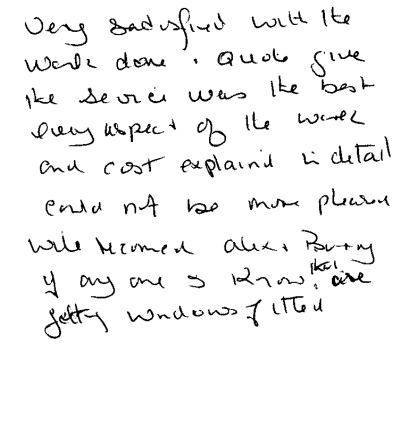 Very satisfied with the
work done. Quote give
the service was the best
every aspect of the work
and cost explained in detail
could not be more pleased
will recomend alex.
if any one I know that are
getting windows fitted